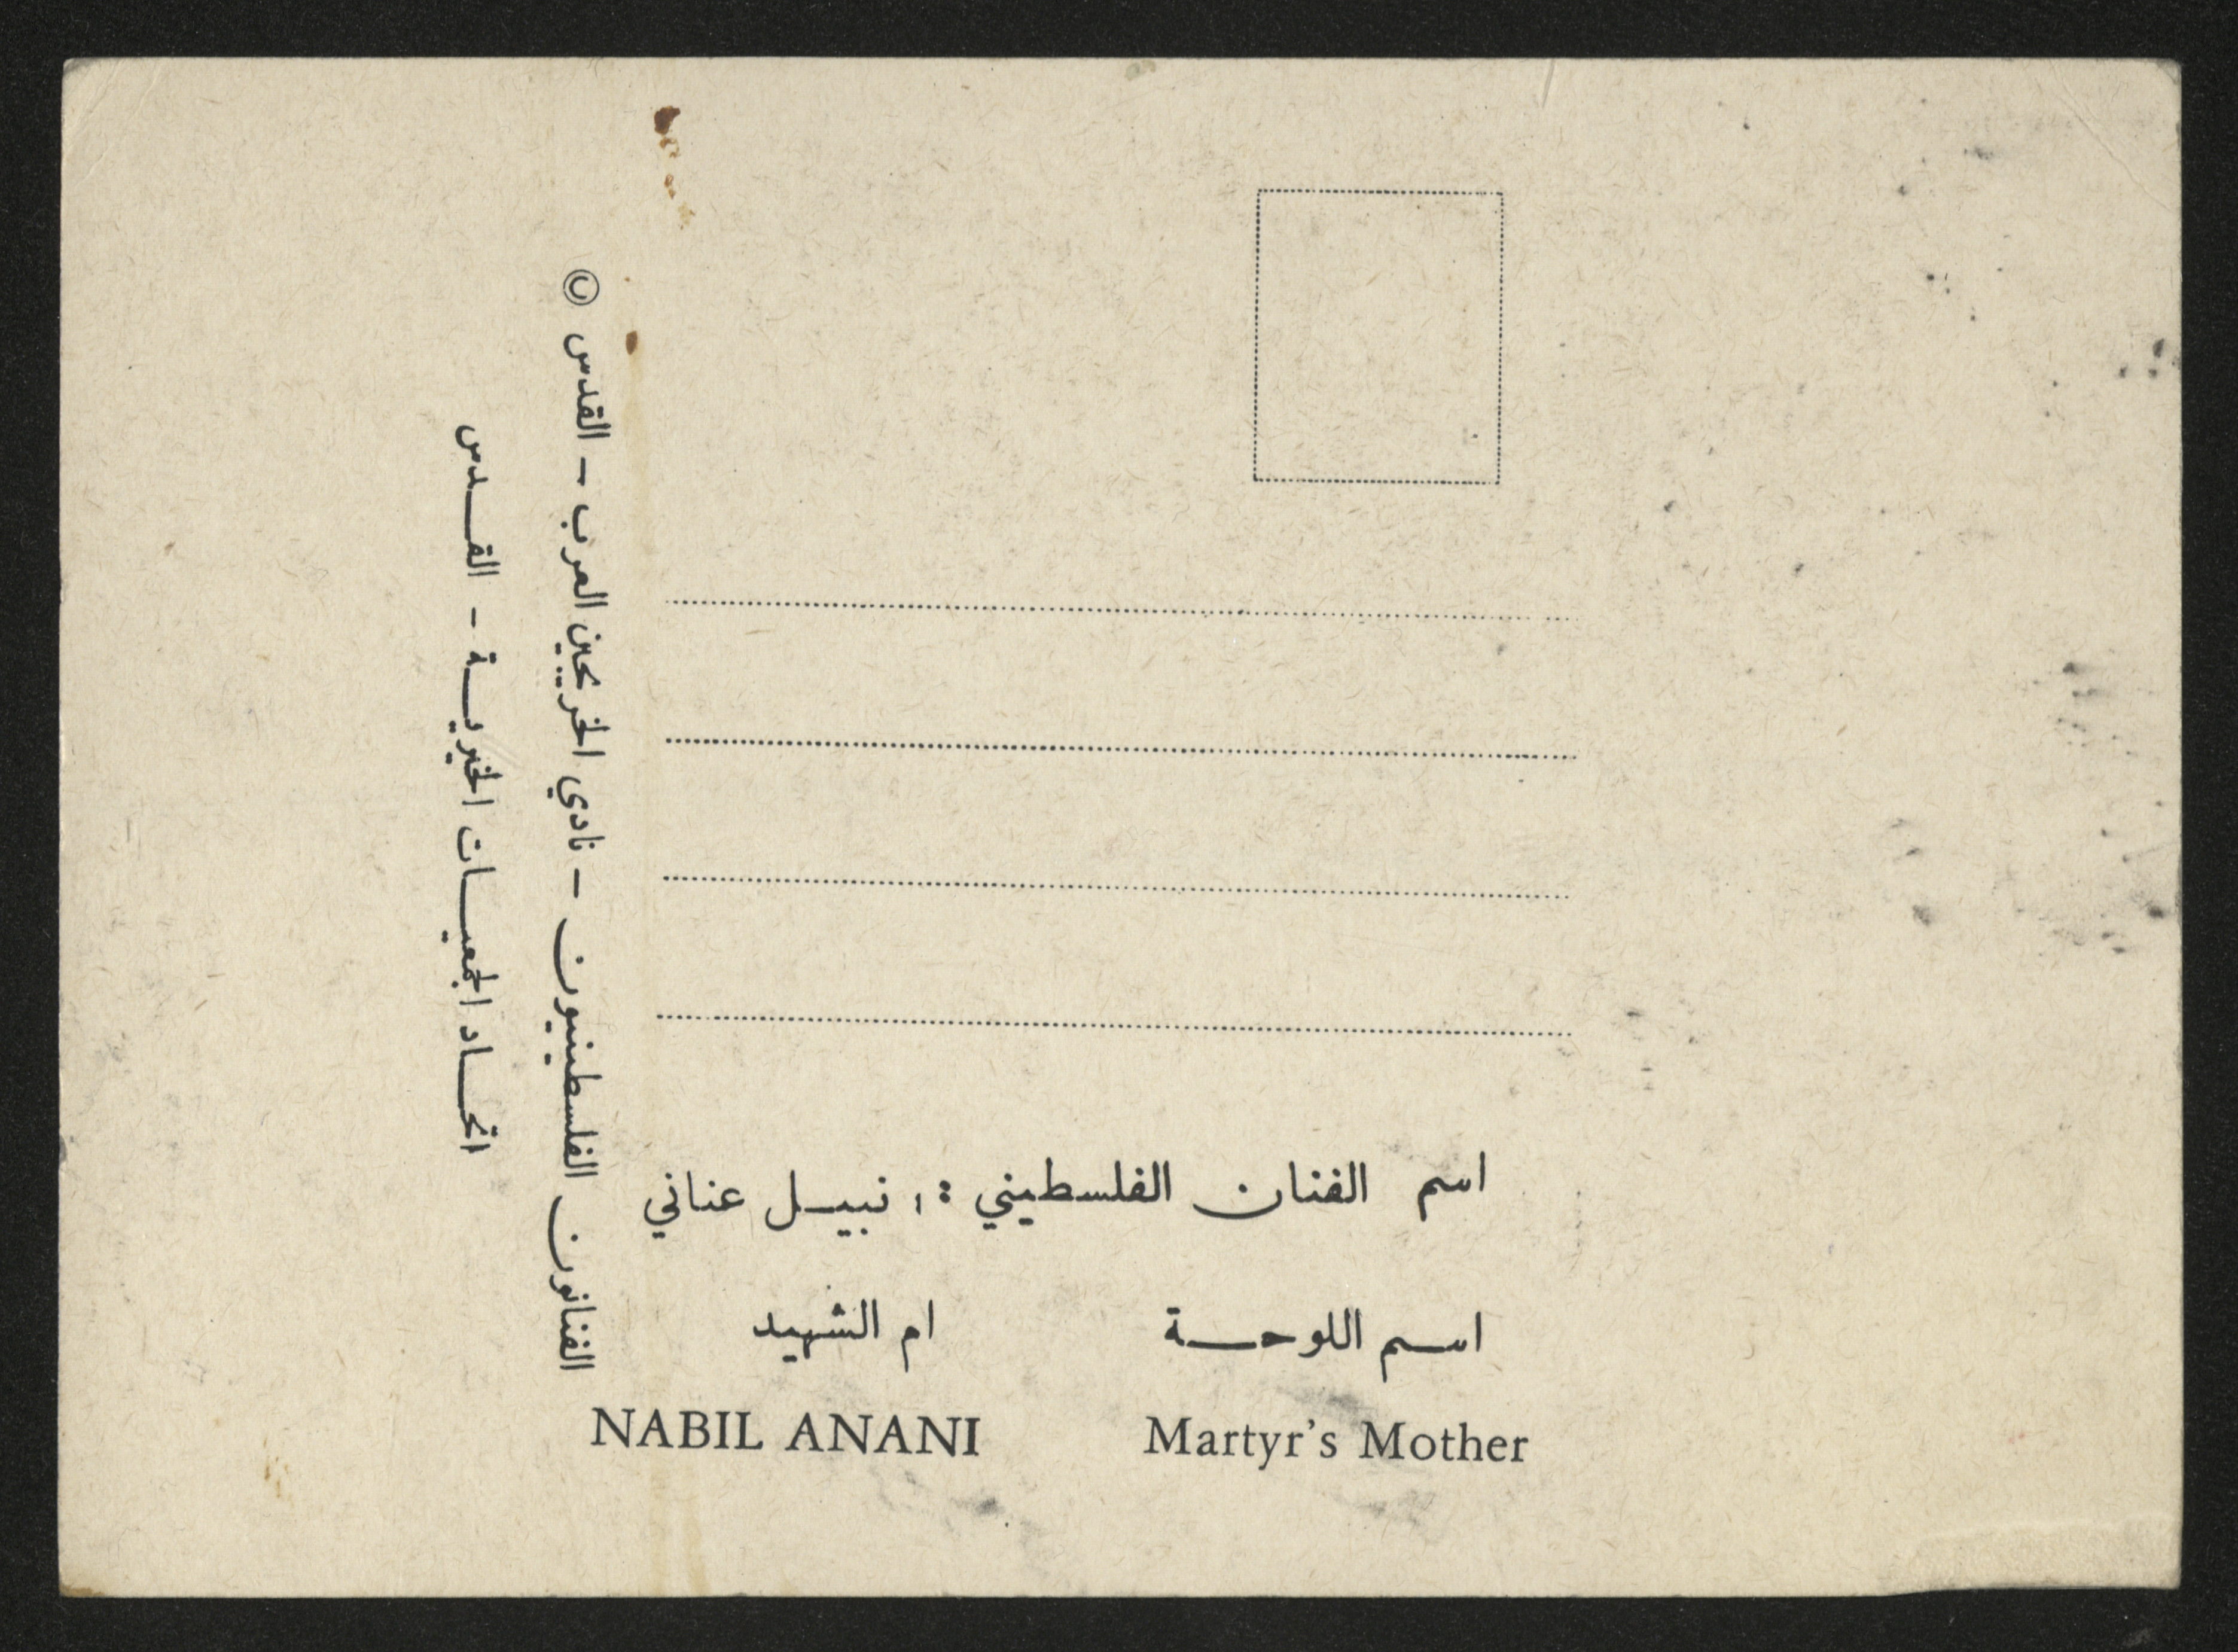 اسم الفنان الفلسطيني : نبيل عناني
اسم اللوحة ام الشهيد
NABIL ANANI Martyr's Mother
الفنانون الفلسطينيون - نادي الخريجين العرب - القدس ©
اتحاد الجمعيات الخيرية - القدس